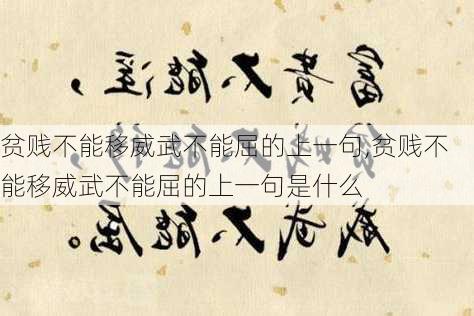 富貴不能淫，
贫贱不能移威武不能屈的上一句,贫贱不
能移威武不能屈的上一句是什么
威武不能屈。